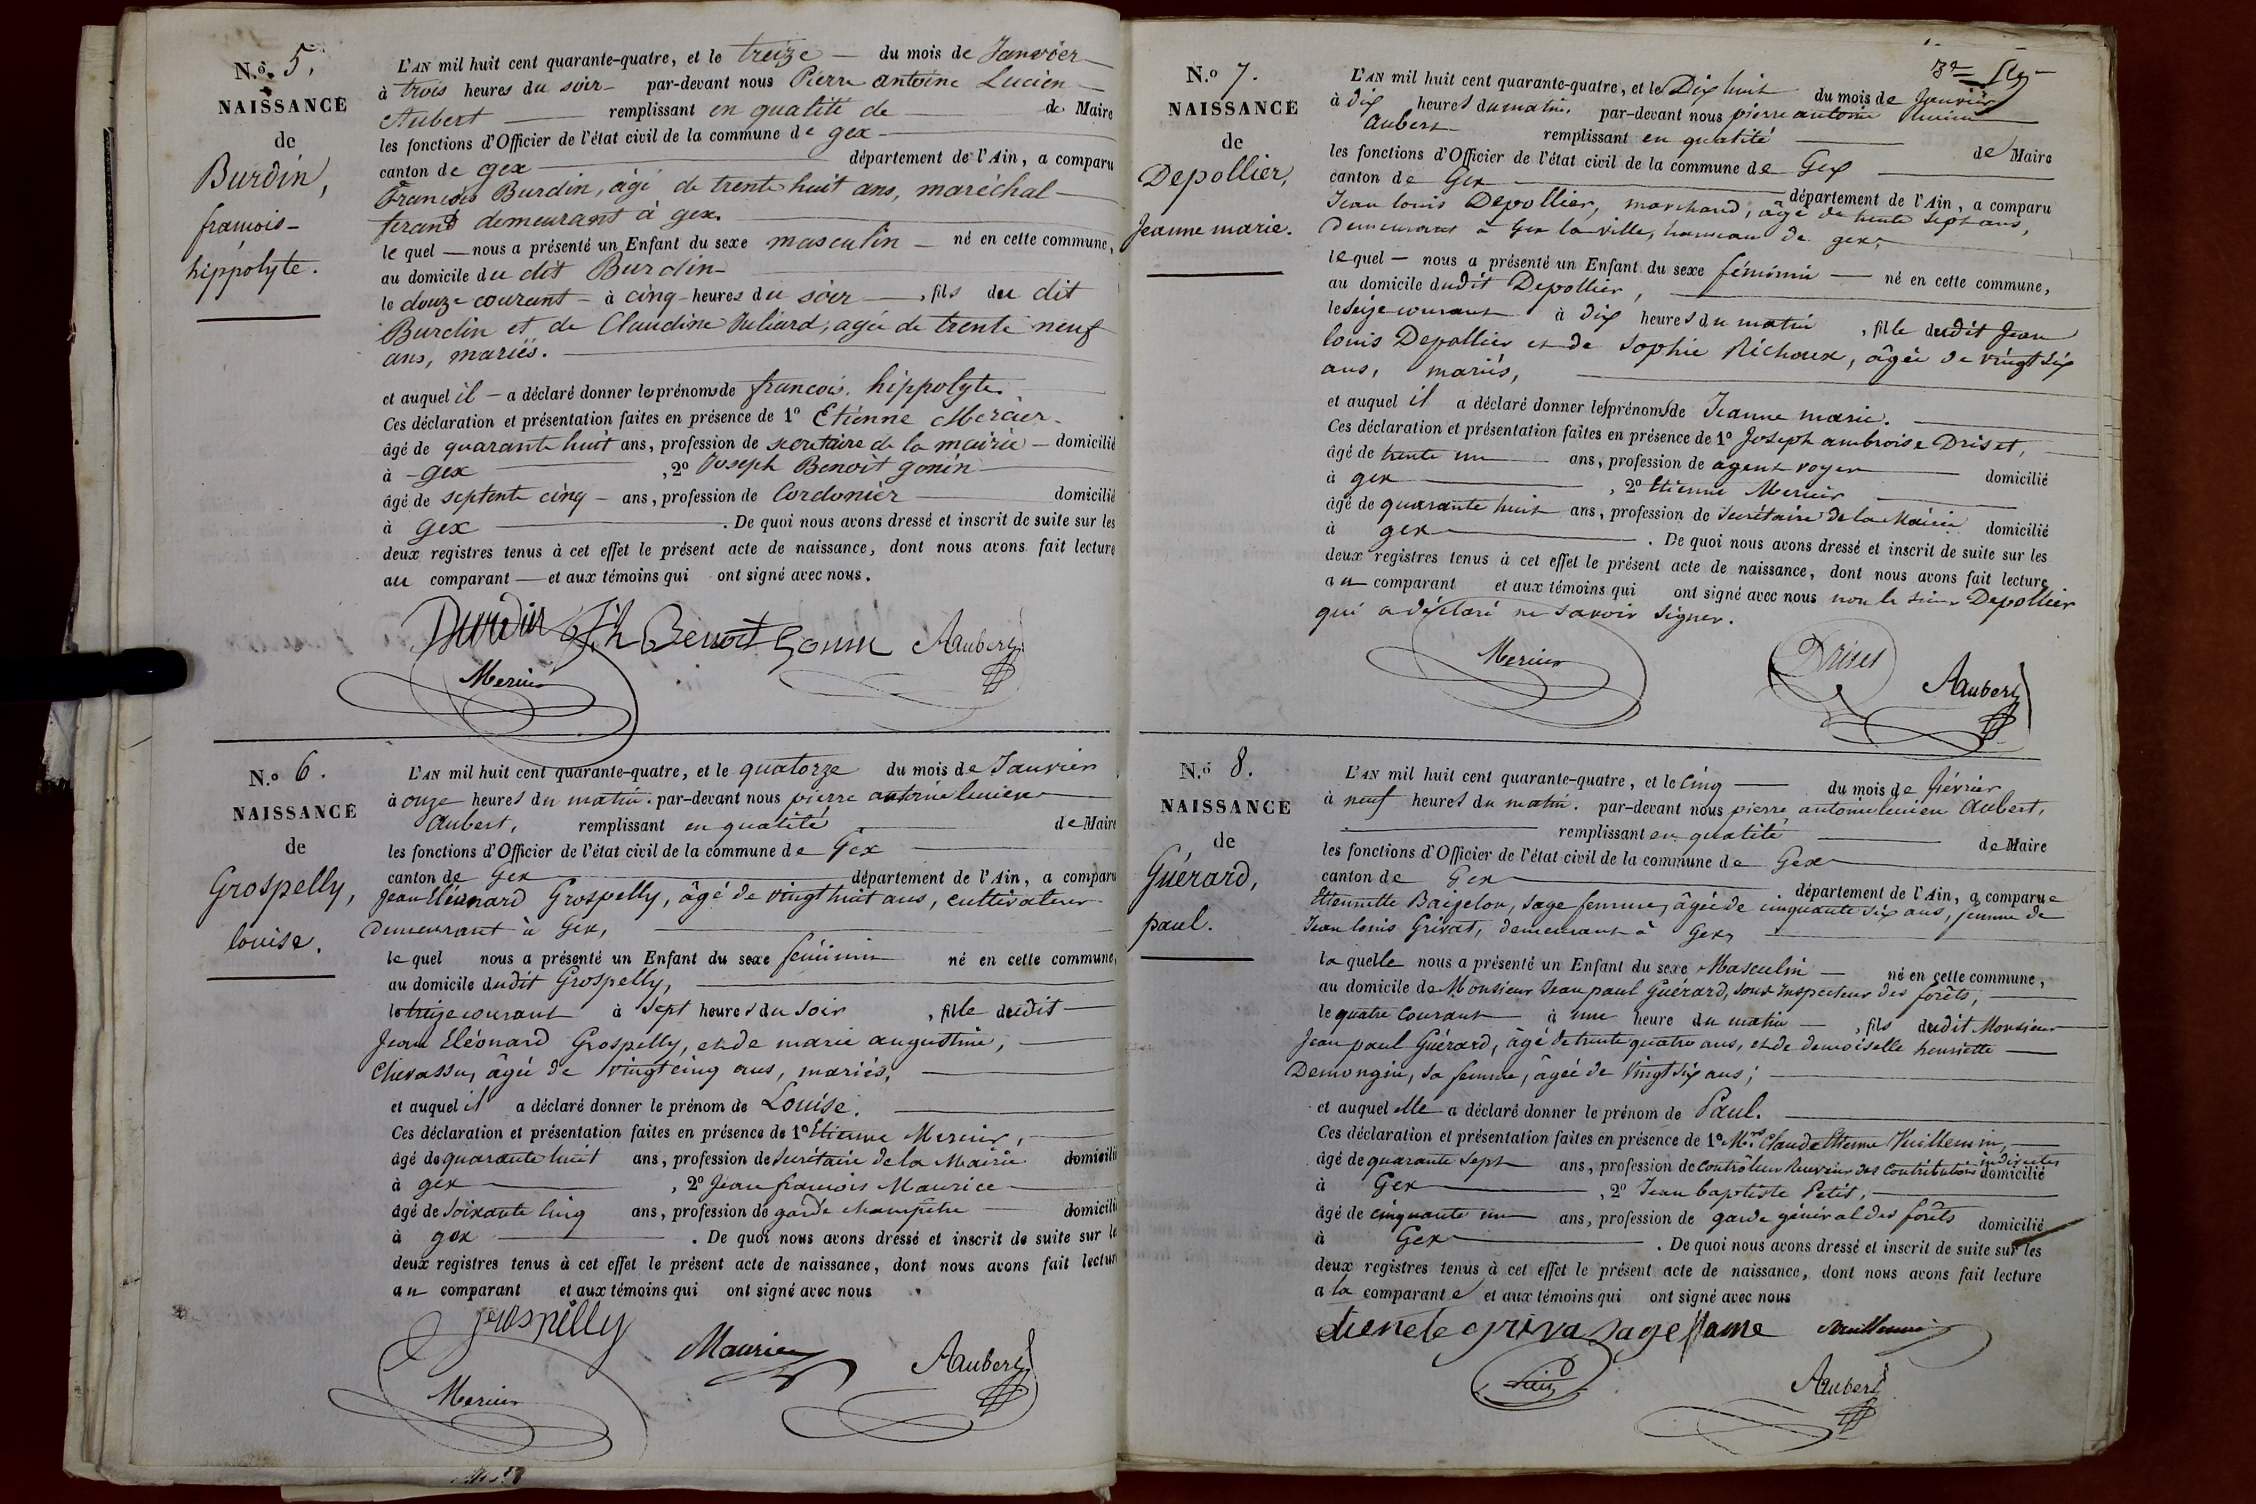 N.º 5.
NAISSANCE
de
Burdin,
francois-
hippolyte.
L'AN mil huit cent quarante-quatre, et le treize du mois de Janvier
à trois heures du soir par-devant nous Pierre antoine Lucien
Aubert remplissant en qualité de de Maire
les fonctions d'Officier de l'état civil de la commune de gex
canton de gex département de l'Ain, a comparu
Francois Burdin, âgé de trente huit ans, maréchal
ferand demeurant à gex.
le quel nous a présenté un Enfant du sexe masculin né en cette commune,
au domicile du dit Burdin
le douze courant à cinq heures du soir, fils du dit
Burdin et de Claudine Juliard, agée de trente neuf
ans, mariés.
et auquel il a déclaré donner les prénoms de francois. hippolyte.
Ces déclaration et présentation faites en présence de 1º Etienne Mercier
âgé de quarante huit ans, profession de secretaire de la mairie domicilié
à gex, 2º Joseph Benoit gonin
âgé de septente cinq ans, profession de Cordonier domicilié
à gex. De quoi nous avons dressé et inscrit de suite sur les
deux registres tenus à cet effet le présent acte de naissance, dont nous avons fait lecture
au comparant et aux témoins qui ont signé avec nous.
Burdin Jh Benoit Gonin Aaubert
Mercier
N.º 6.
NAISSANCE
de
Grospelly,
louise.
L'AN mil huit cent quarante-quatre, et le quatorze du mois de Janvier
à onze heures du matin. par-devant nous pierre antoine lucien
Aubert, remplissant en qualité de Maire
les fonctions d'Officier de l'état civil de la commune de Gex
canton de Gex département de l'Ain, a comparu
Jean Eléonard Grospelly, âgé de vingt huit ans, cultivateur
Demeurant à Gex,
le quel nous a présenté un Enfant du sexe féminin né en cette commune,
au domicile dudit Grospelly,
le treize courant à sept heures du soir, fille dudit
Jean Eléonard Grospelly, et de marie augustine,
Chevassu, âgée de vingt cinq ans, mariés,
et auquel il a déclaré donner le prénom de Louise.
Ces déclaration et présentation faites en présence de 1º Etienne Mercier,
âgé de quarante huit ans, profession de Secrétaire de la Mairie domicilié
à gex, 2º Jean francois Maurice
âgé de soixante cinq ans, profession de garde champêtre domicilié
à gex. De quoi nous avons dressé et inscrit de suite sur le
deux registres tenus à cet effet le présent acte de naissance, dont nous avons fait lecture
au comparant et aux témoins qui ont signé avec nous
Grospelly Maurice Aaubert
Mercier
N.º 7.
NAISSANCE
de
Depollier,
Jeanne marie.
L'AN mil huit cent quarante-quatre, et le Dix huit du mois de Janvier
à dix heures du matin, par-devant nous pierre antoine lucien
Aubert remplissant en qualité de Maire
les fonctions d'Officier de l'état civil de la commune de Gex
canton de Gex département de l'Ain, a comparu
Jean louis Depollier, marchand, âgé de trente sept ans,
Demeurant à Gex la ville, hameau de gex,
lequel nous a présenté un Enfant du sexe féminin né en cette commune,
au domicile dudit Depollier,
le seize courant à dix heures du matin, fille dudit Jean
louis Depollier et de Sophie Richoux, âgée de vingt six
ans, mariés,
et auquel il a déclaré donner les prénoms de Jeanne marie.
Ces déclaration et présentation faites en présence de 1º Joseph ambroise Driset,
âgé de trente un ans, profession de agent voyer domicilié
à gex, 2º Etienne Mercier
âgé de quarante huit ans, profession de Secrétaire de la Mairie domicilié
à gex. De quoi nous avons dressé et inscrit de suite sur les
deux registres tenus à cet effet le présent acte de naissance, dont nous avons fait lecture
au comparant et aux témoins qui ont signé avec nous non le sieur Depollier
qui a déclaré ne savoir signer.
Mercier Driset Aaubert
N.º 8.
NAISSANCE
de
Guérard,
paul.
L'AN mil huit cent quarante-quatre, et le cinq du mois de février
à neuf heures du matin. par-devant nous pierre antoine lucien Aubert,
remplissant en qualité de Maire
les fonctions d'Officier de l'état civil de la commune de Gex
canton de Gex département de l'Ain, a comparue
Etiennette Baizelon, sage femme, âgée de cinquante six ans, femme de
Jean louis Grivat, demeurant à Gex,
la quelle nous a présenté un Enfant du sexe Masculin né en cette commune,
au domicile de Monsieur Jean paul Guérard, sous inspecteur des forêts,
le quatre courant à une heure du matin, fils dudit Monsieur
Jean paul Guérard, âgé de trente quatre ans, et de demoiselle henriette
Demongin, sa femme, âgée de vingt six ans;
et auquel elle a déclaré donner le prénom de Paul.
Ces déclaration et présentation faites en présence de 1º Mrs Claude Etienne Vuillemin,
âgé de quarante sept ans, profession de contrôleur receveur des contributions indirectes domicilié
à Gex, 2º Jean baptiste Petit,
âgé de cinquante un ans, profession de garde général des forêts domicilié
à Gex. De quoi nous avons dressé et inscrit de suite sur les
deux registres tenus à cet effet le présent acte de naissance, dont nous avons fait lecture
a la comparante et aux témoins qui ont signé avec nous
etienete griva sage fame Vuillemin
Petit Aaubert